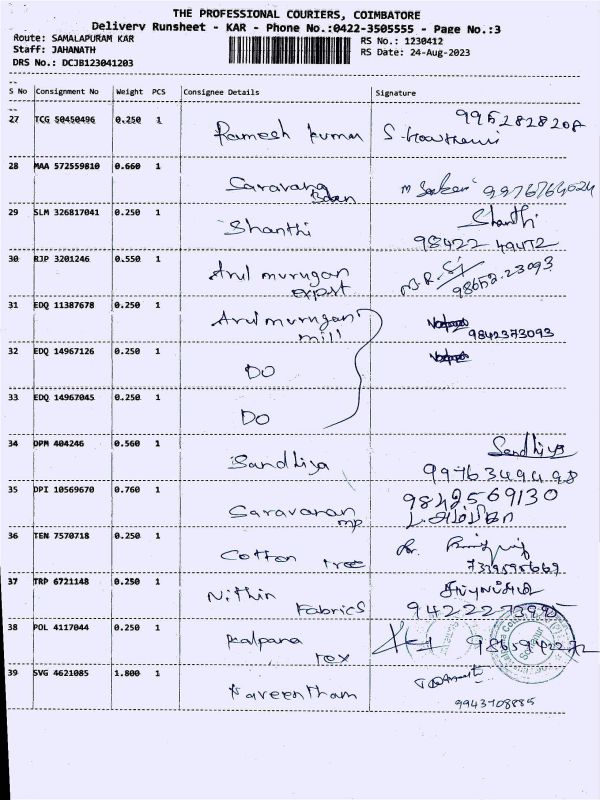 THE PROFESSIONAL COURIERS, COIMBATORE
Delivery Runsheet - KAR - Phone No.:0422-3505555 - Page No.:3
Route: SAMALAPURAM KAR
RS No.: 1230412
Staff: JAHANATH
RS Date: 24-Aug-2023
DRS No.: DCJB123041203
S No Consignment No Weight PCS Consignee Details Signature
27 TCG 50450496 0.250 1
Ramesh kumar
28 MAA 572559810 0.660 1
Saravana
29 SLM 326817041 0.250 1
Shanthi Shanthi
30 RJP 3201246 0.550 1
Arul murugan
31 EDQ 11387678 0.250 1
Arulmurugan
mill 9842373093
32 EDQ 14967126 0.250 1
DO
33 EDQ 14967045 0.250 1
DO
34 DPM 404246 0.560 1
Sandhiya Sandhiya
35 DPI 10569670 0.760 1
Saravanan 9842569130
mp
36 TEN 7570718 0.250 1
Cotton tree
37 TRP 6721148 0.250 1
Nithin Fabrics
38 POL 4117044 0.250 1
Kalpana
Tex
39 SVG 4621085 1.800 1
Naveentham
9943708885